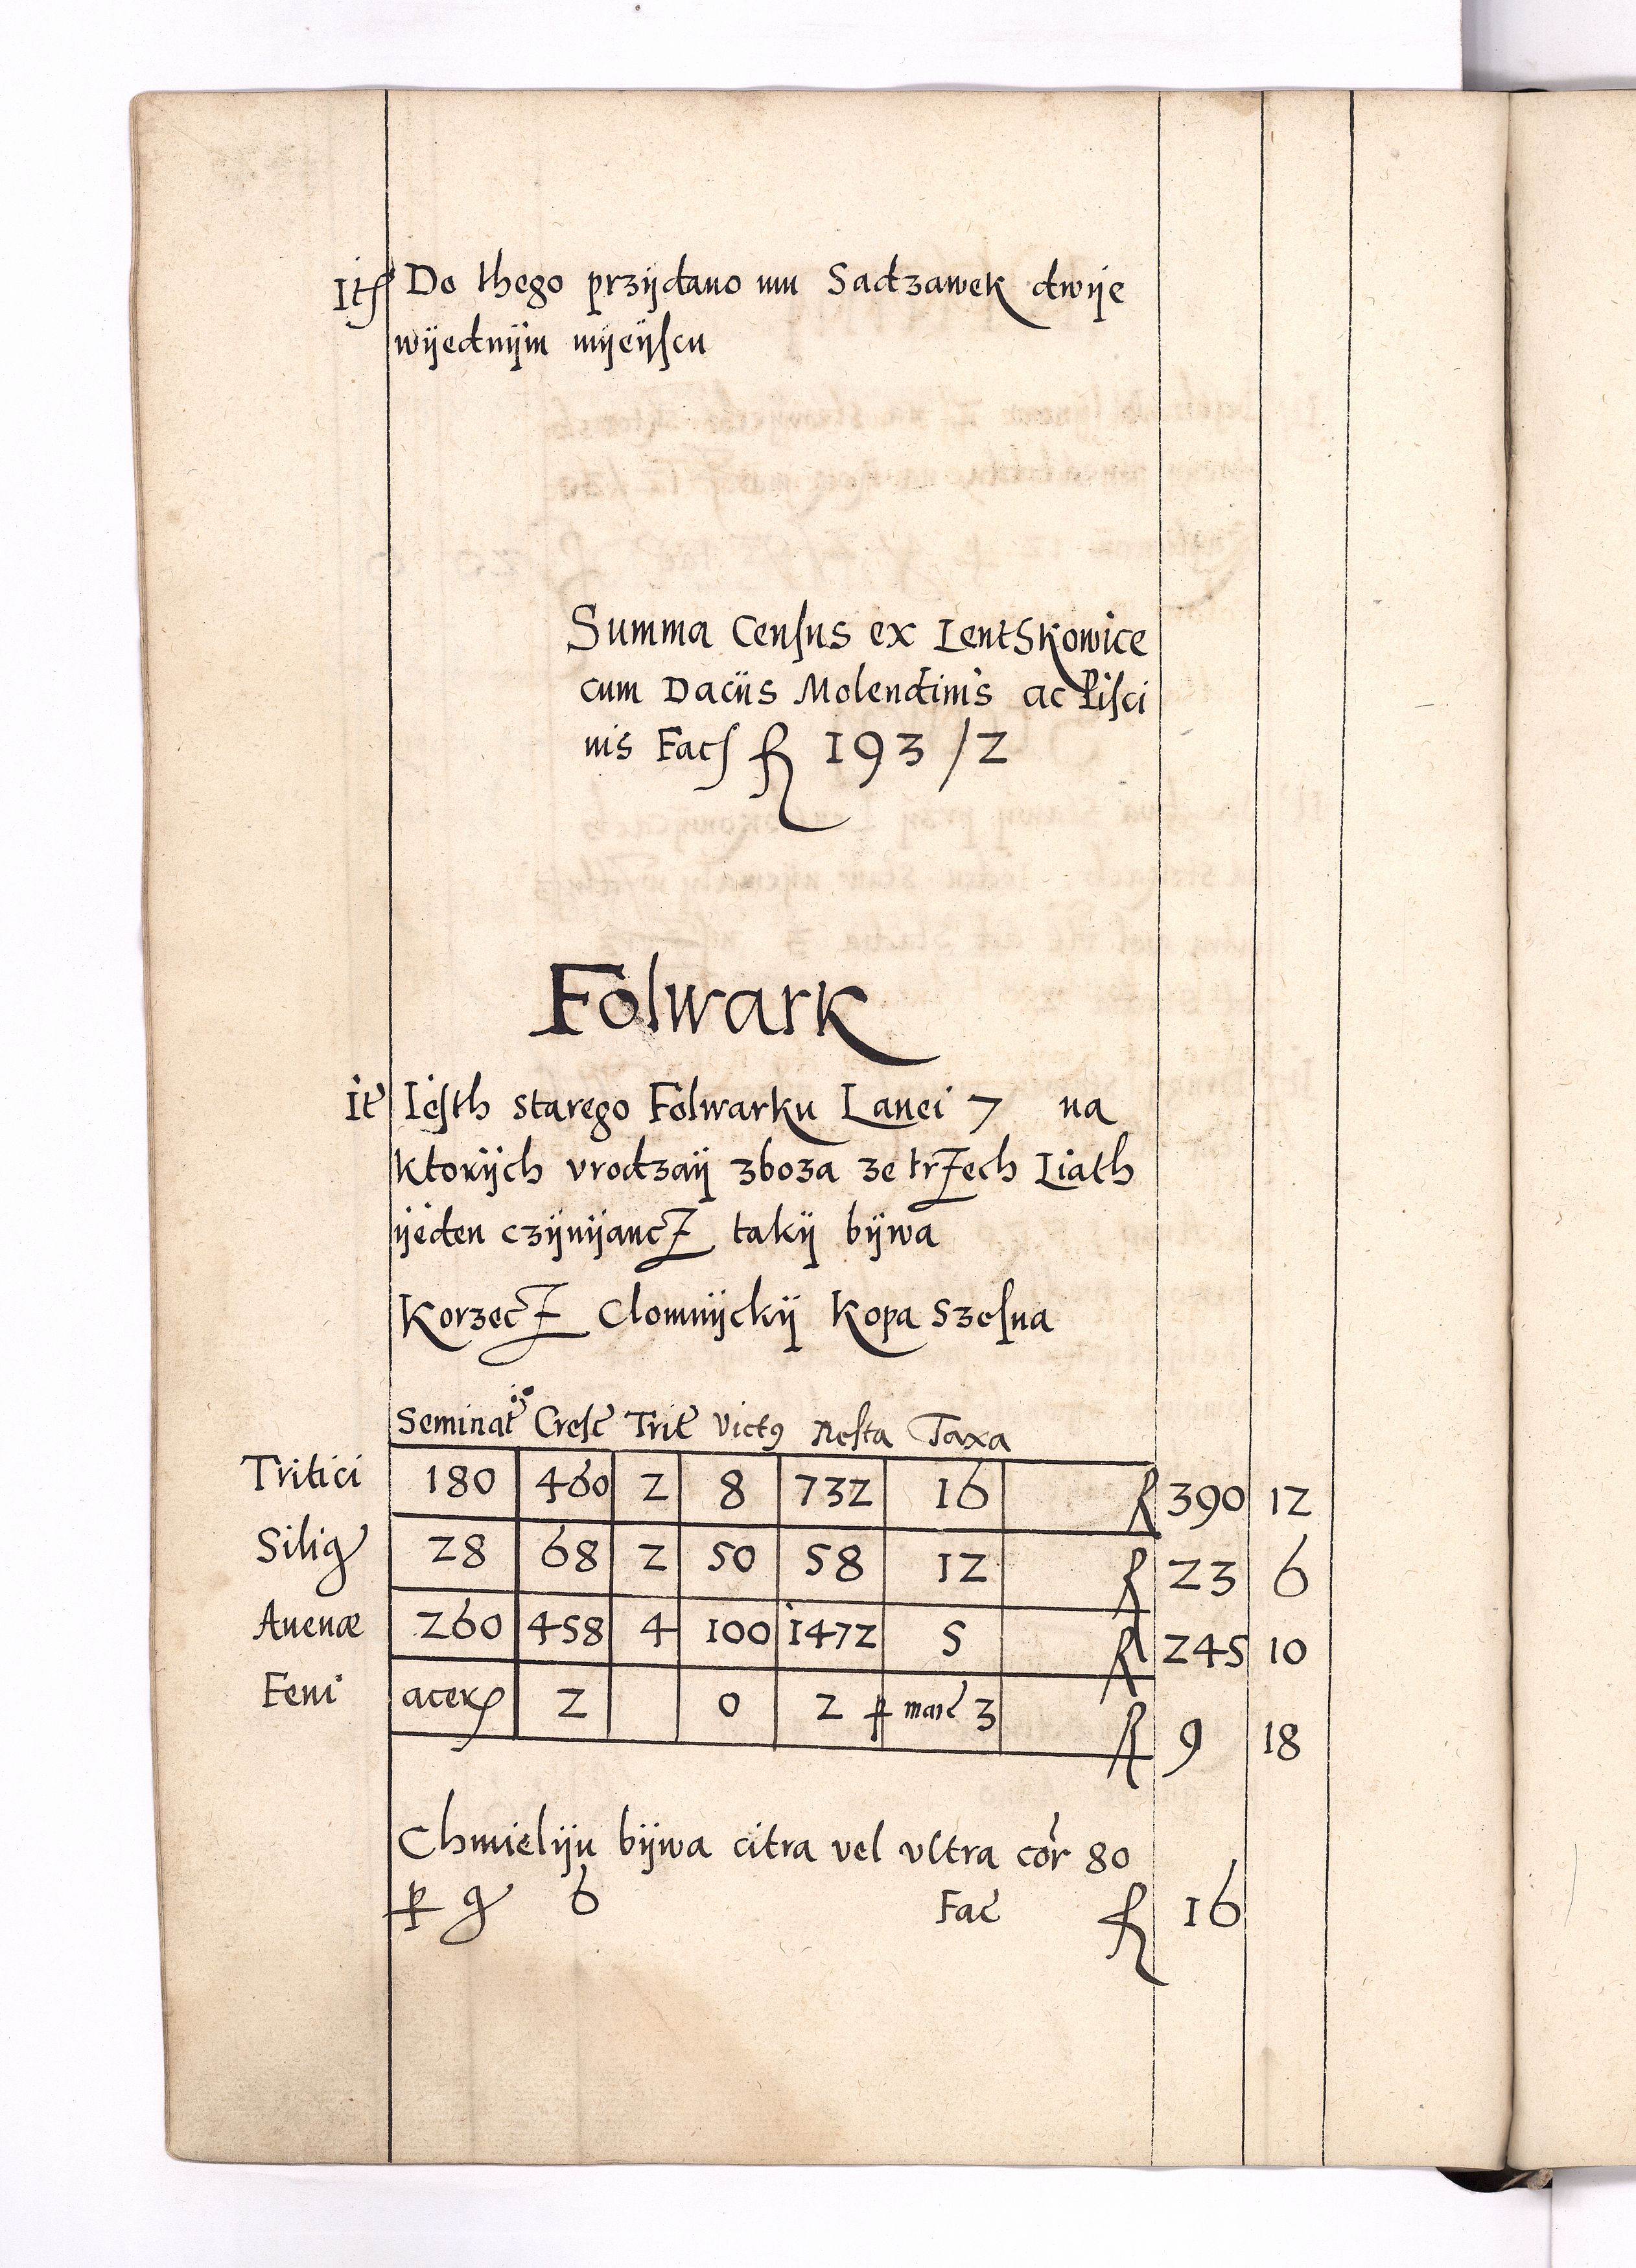 Itꝭ Do thego przÿdano mu Sadzawek dwÿe
wÿednÿm mÿeÿscu
Summa Census ex Lentskowice
cum Daciis Molendinis ac Pisci
nis Fac fl 193 / 2
Folwark
It Iesth starego Folwarku Lanei 7 na
ktorÿch vrodzaÿ zboza ze trzech Liath
ÿeden czÿnÿancz takÿ bÿwa
Korzecz Clomnÿckÿ Kopa Szesna
Seminat Cresc Trit Victꝰ Resta Taxa
Tritici 180 460 2 8 732 16 fl 390 12
Silig 28 68 2 50 58 12 fl 23 6
Auenæ 260 458 4 100 1472 5 fl 245 10
Feni acerꝭ 2 0 2 ꝑ marc 3 fl 9 18
Chmielÿu bÿwa citra vel vltra cor 80
ꝑ g 6 Fac fl 16